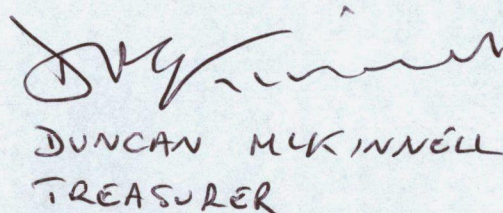 DUNCAN McKINNELL
TREASURER